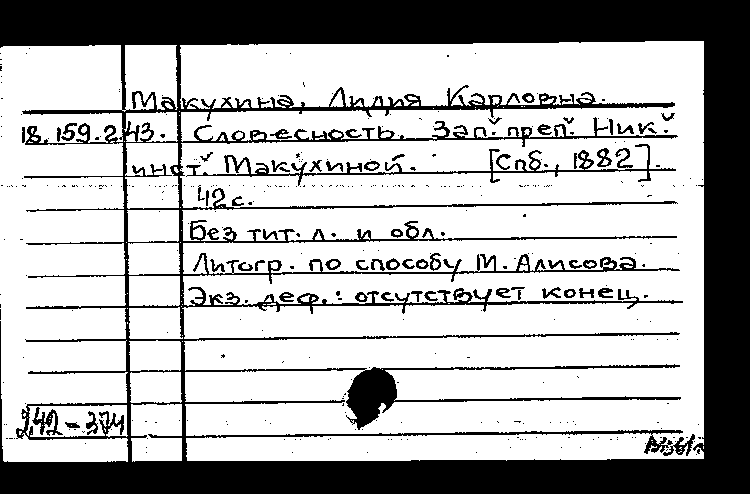 Макухина, Лидия Карловна.
18.159.2.43. Словесность. Зап. преп. Ник.
инст. Макухиной. [Спб., 1882].
42 с.
Без тит. л. и обл.
Литогр. по способу М. Алисова.
Экз. деф.: отсутствует конец.